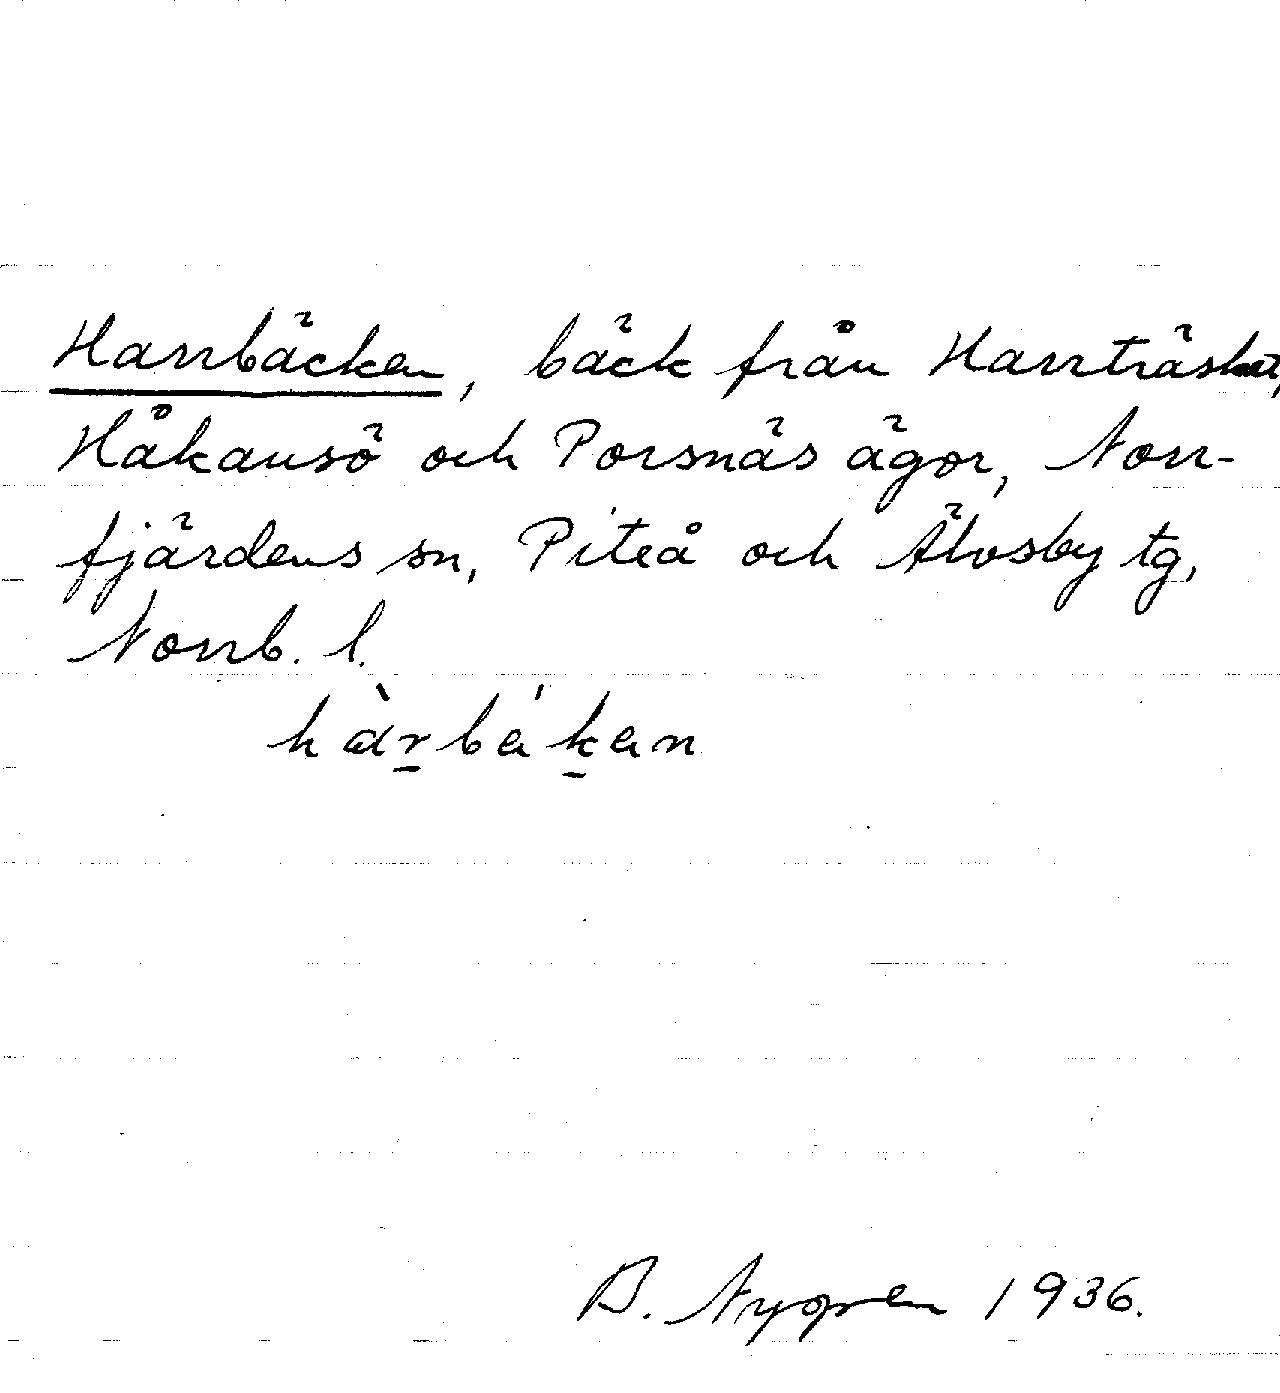 Harrbäcken, bäck från Harrträsket,
Håkansö och Porsnäs ägor, Norr-
fjärdens sn, Piteå och Älvsby tg,
Norrb. l.
hàrbékan
B. Nygren 1936.